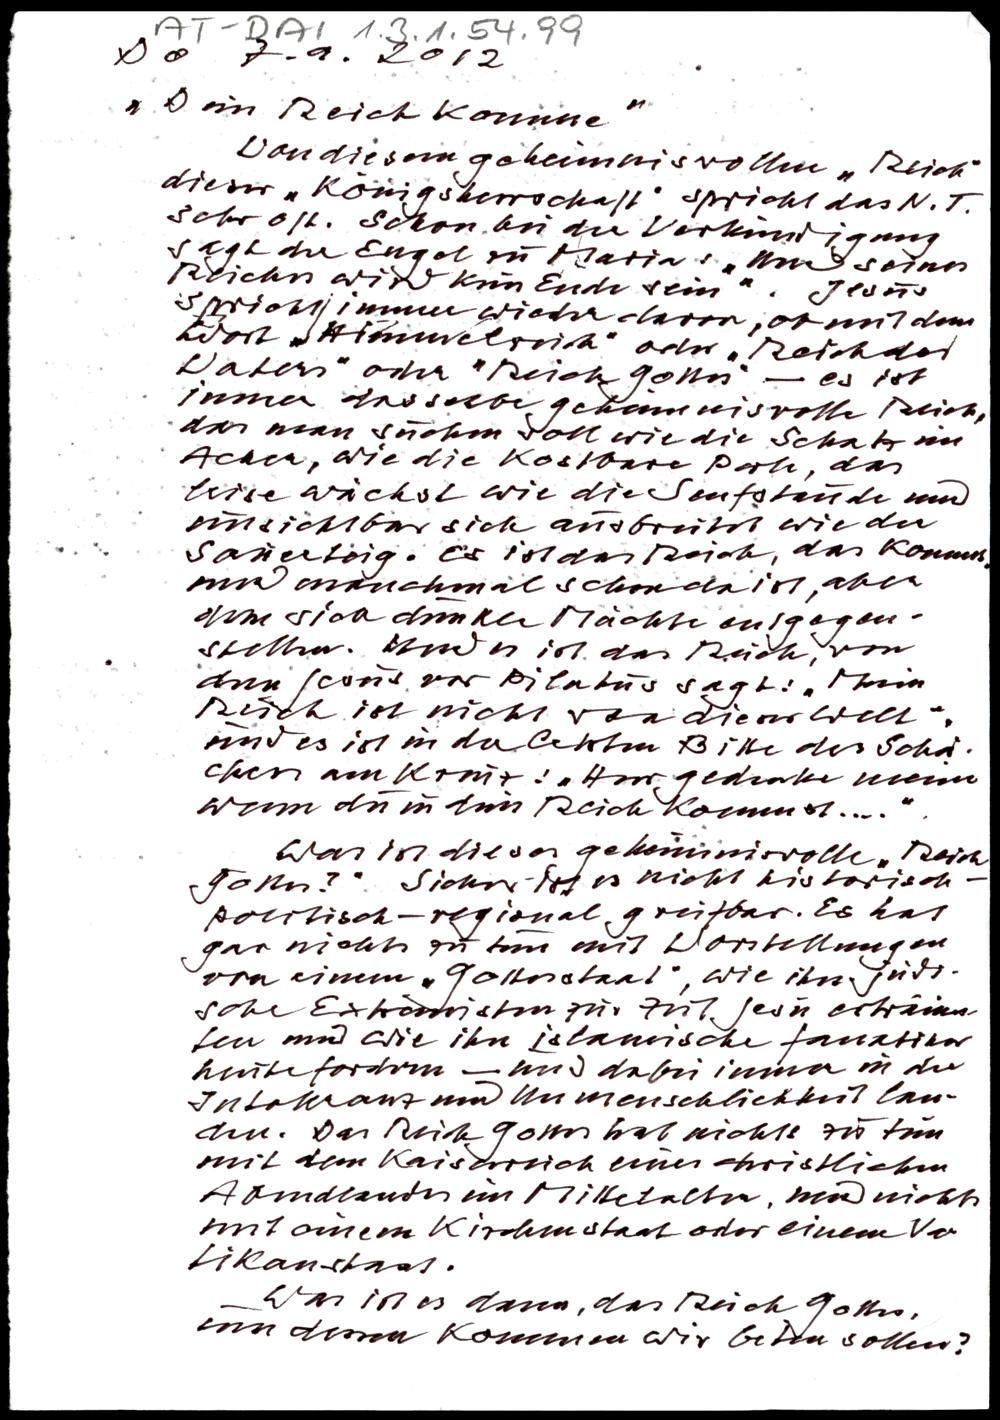 AT-DAI 1.3.1.54.99
Do 7.9.2012
„Dein Reich komme"
Von diesem geheimnisvollen „Reich"
dieser „Königsherrschaft" spricht das N.T.
sehr oft. Schon bei der Verkündigung
sagt der Engel zu Maria: „Und seines
Reiches wird kein Ende sein". Jesus
spricht immer wieder davon, ob mit dem
Wort „Himmelreich" oder „Reich des
Vaters" oder "Reich Gottes" – es ist
immer dasselbe geheimnisvolle Reich,
das man suchen soll wie die Schatz im
Acker, wie die kostbare Perle, das
leise wächst wie die Senfstaude und
unsichtbar sich ausbreitet wie der
Sauerteig. Es ist das Reich, das kommt,
und manchmal schon da ist, aber
dem sich dunkle Mächte entgegen-
stellen. Und es ist das Reich, von
dem Jesus vor Pilatus sagt: „Mein
Reich ist nicht von dieser Welt",
und es ist in der letzten Bitte des Schä-
chers am Kreuz: „Herr gedenke meiner
wenn du in dein Reich kommst...."
Was ist dieses geheimnisvolle „Reich
Gottes?" Sicher ist es nicht historisch-
politisch-regional greifbar. Es hat
gar nichts zu tun mit Vorstellungen
von einem „Gottesstaat", wie ihn jüdi-
sche Extremisten zur Zeit Jesu erträum-
ten und wie ihn islamische Fanatiker
heute fordern – und dabei immer in der
Intoleranz und Unmenschlichkeit lan-
den. Das Reich Gottes hat nichts zu tun
mit dem Kaiserreich eines christlichen
Abendlandes im Mittelalter, und nichts
mit einem Kirchenstaat oder einem Va
tikanstaat.
Was ist es dann, das Reich Gottes,
um dessen Kommen wir beten sollen?